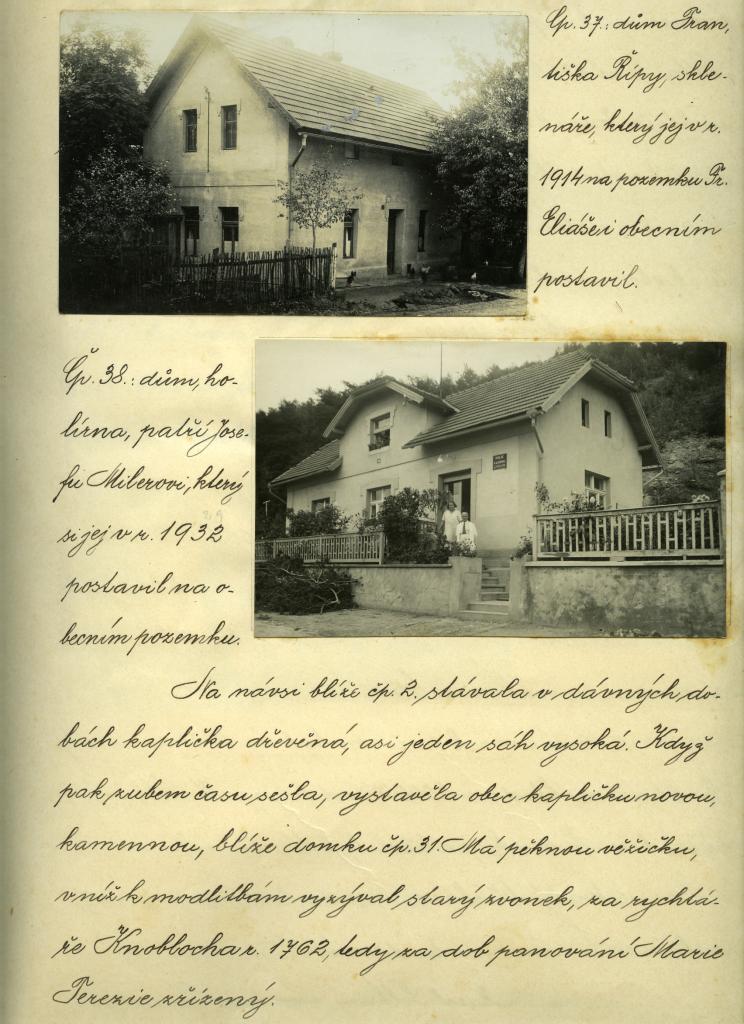 Čp. 37.: dům Fran,
tiška Řípy, skle-
náře, který jej v r.
1914 na pozemku Fr.
Eliáše i obecním
postavil.
Čp. 38.: dům, ho-
lírna, patří Jose-
fu Milerovi, který
si jej v r. 1932
postavil na o-
becním pozemku.
Na návsi blíže čp. 2. stávala v dávných do-
bách kaplička dřevěná, asi jeden sáh vysoká. Když
pak zubem času sešla, vystavěla obec kapličku novou,
kamennou, blíže domku čp. 31. Má pěknou věžičku,
v níž k modlitbám vyzýval starý zvonek, za rychtá-
ře Knoblocha r. 1762, tedy za dob panování Marie
Terezie zřízený.